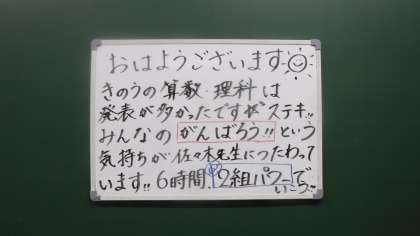 おはようございます
きのうの算数・理科は
発表が多かったですがステキ!!
みんなの がんばろう!! という
気持ちが佐々木先生につたわって
います!! 6時間、2組パワーで
いこう!!